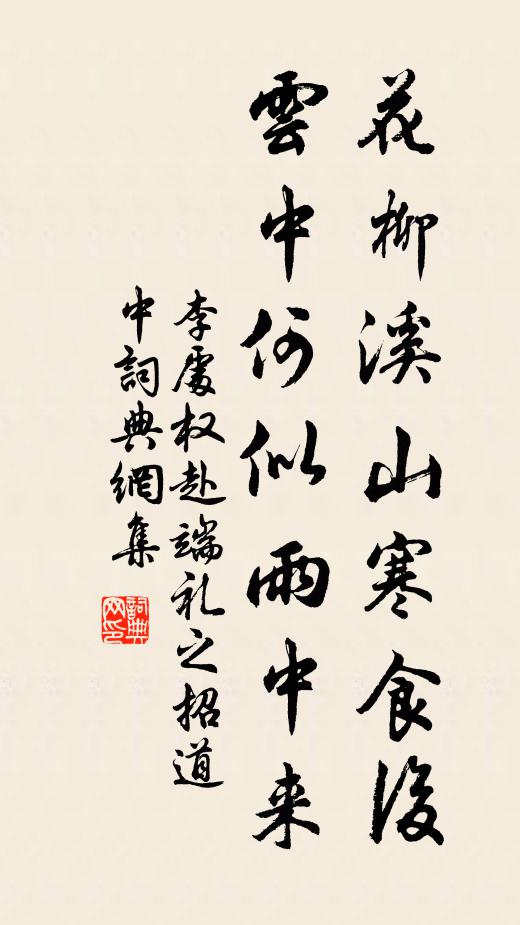 花柳溪山寒食後
雲中何似雨中来
李處权赴端礼之招道
中詞典網集
詞典网印